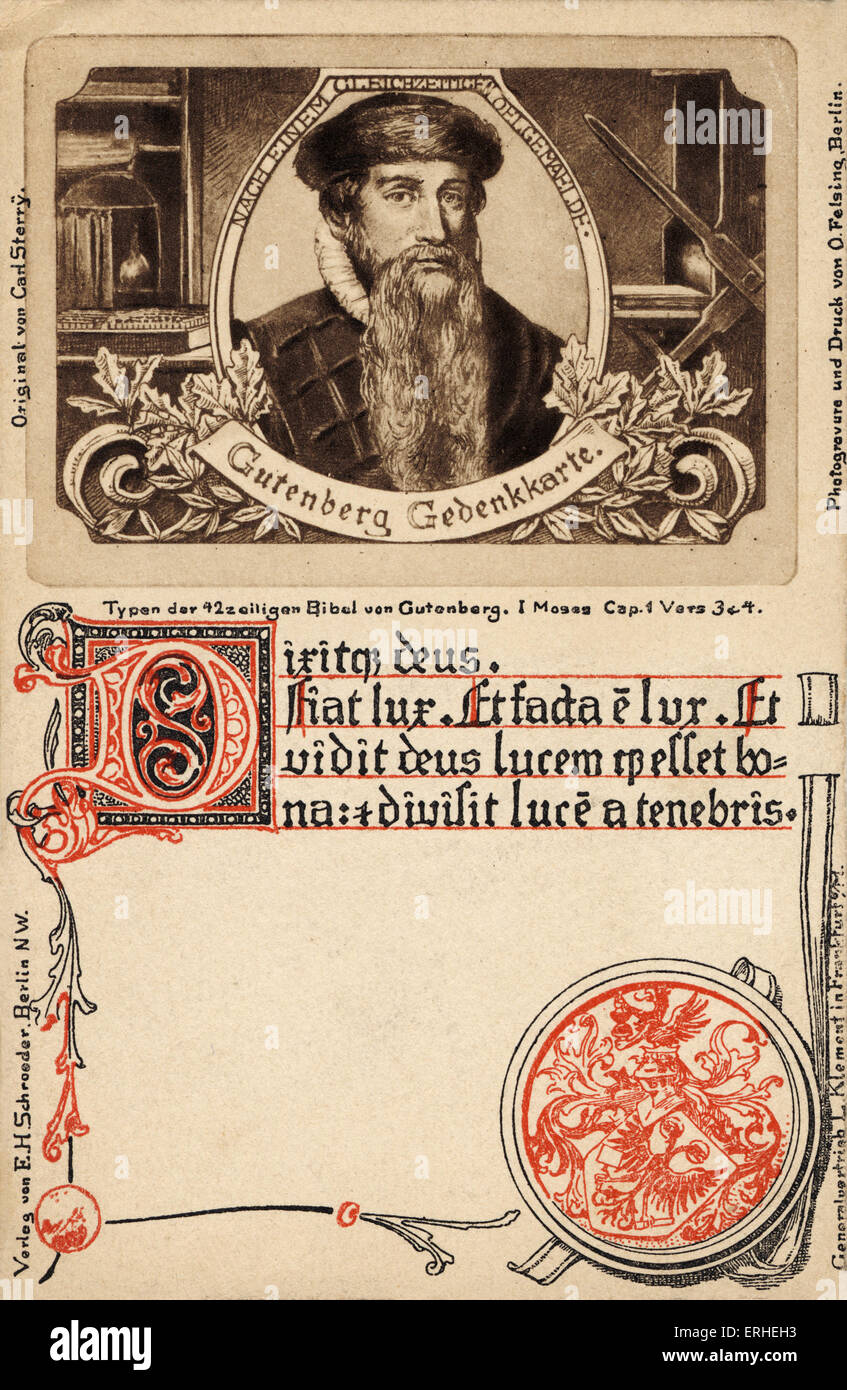 NACH EINEM GLEICHZEITIGEN OELGEMÄHLDE.
Original von Carl Sterrÿ.
Photogravure und Druck von O. Felsing, Berlin.
Gutenberg Gedenkkarte.
Typen der 42zeiligen Bibel von Gutenberg. I Moses Cap. 1 Vers 3 & 4.
Dixitqꝫ deus.
Fiat lux. Et facta ē lux. Et
vidit deus lucem ꝙ esset bo=
na: ⁊ divisit lucē a tenebris.
Verlag von E. H. Schroeder, Berlin NW.
Generalvertrieb L. Klement in Frankfurt
alamy
Image ID: ERHEH3
www.alamy.com